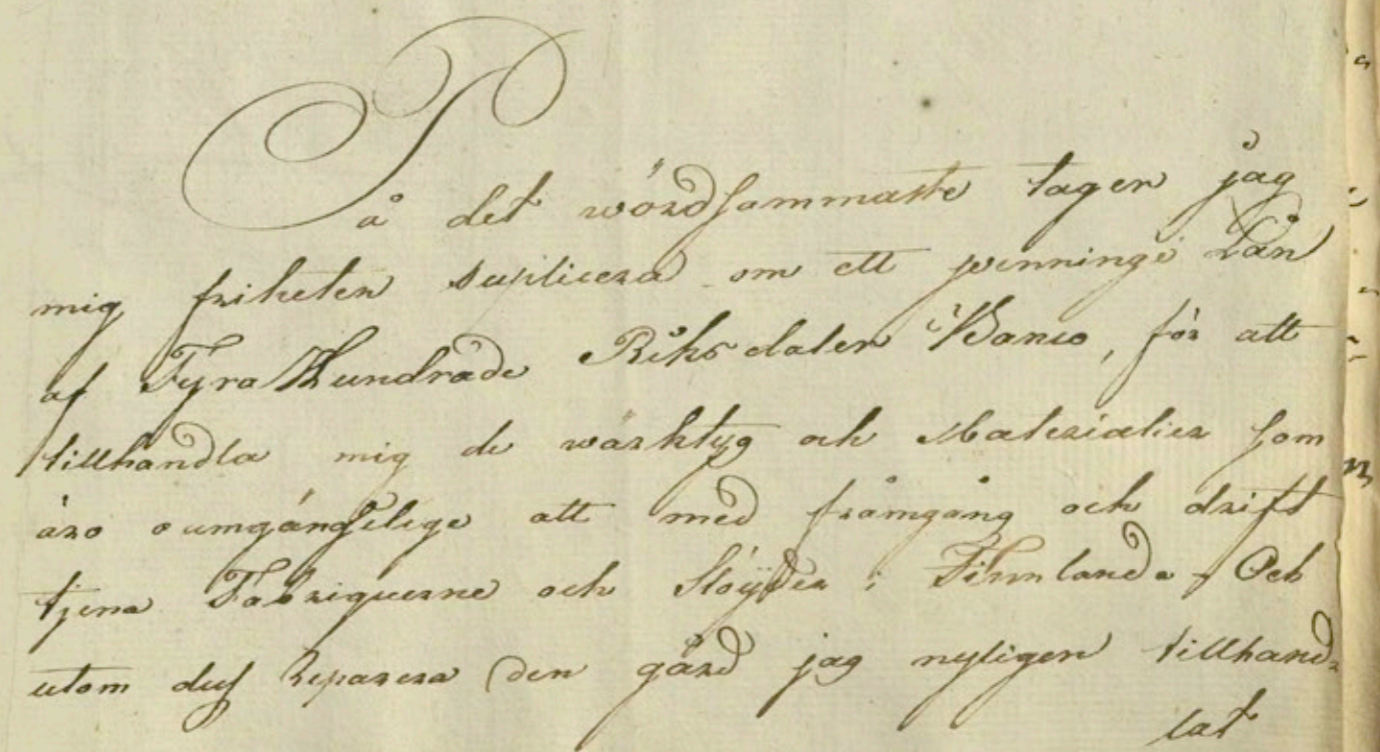 På det wördsammaste tager jag
mig friheten suplicera om ett penninge Lån
af Fyra Hundrade Riksdaler Banco, för att
tillhandla mig de wärktyg och Materialier som
äro oumgängelige att med framgång och drift
tjena Fabriquerne och Slöyder i Finnland. Och
utom dess Reparera den gård jag nyligen tillhand-
lat